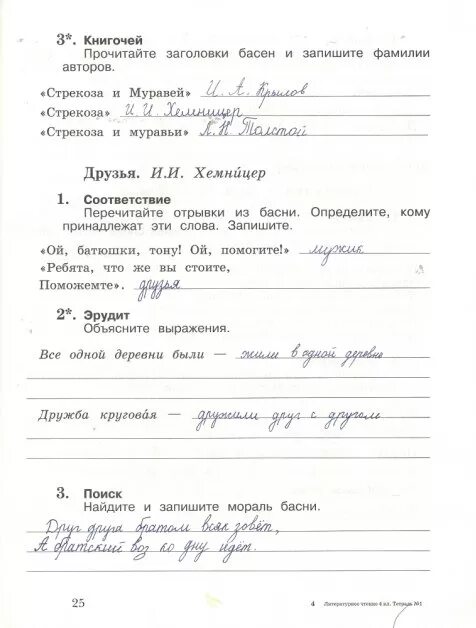 3*. Книгочей
Прочитайте заголовки басен и запишите фамилии
авторов.
«Стрекоза и Муравей» И. А. Крылов
«Стрекоза» И. И. Хемницер
«Стрекоза и муравьи» Л. Н. Толстой
Друзья. И.И. Хемни́цер
1. Соответствие
Перечитайте отрывки из басни. Определите, кому
принадлежат эти слова. Запишите.
«Ой, батюшки, тону! Ой, помогите!» мужик
«Ребята, что же вы стоите,
Поможемте». друзья
2*. Эрудит
Объясните выражения.
Все одной деревни были — жили в одной деревне
Дружба кругова́я — дружили друг с другом
3. Поиск
Найдите и запишите мораль басни.
Друг друга братом всяк зовёт,
А братский воз ко дну идёт.
25
4 Литературное чтение 4 кл. Тетрадь №1